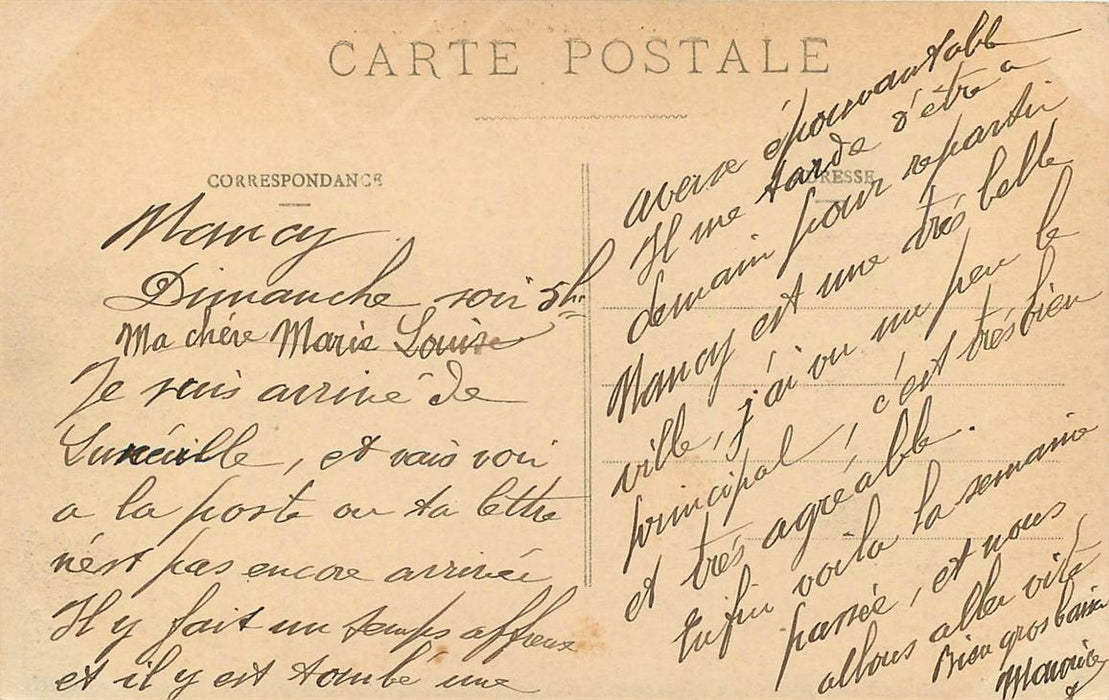 CARTE POSTALE
CORRESPONDANCE
Nancy
Dimanche soir 5h
Ma chére Marie Louise
Je suis arrivé de
Lunéville, et vais voir
a la poste ou ta lettre
n'est pas encore arrivée
Il y fait un temps affreux
et il y est tombé une
averse épouvantable
Il me tarde d'être a
demain pour repartir
Nancy est une trés belle
ville, j'ai vu un peu le
principal, c'est trés bien
et trés agréable.
Enfin voila la semaine
passée, et nous
allons aller vite
Bien gros baiser
Maurice